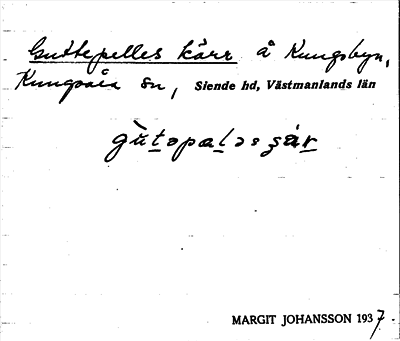 Guttepelles kärr å Kungsbyn,
Kungsåra sn, Siende hd, Västmanlands län
MARGIT JOHANSSON 1937.